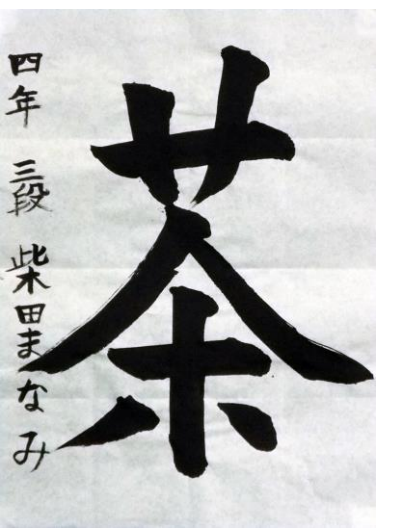 茶
四年 三段 柴田まなみ